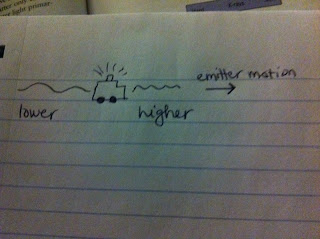 emitter motion
lower
higher